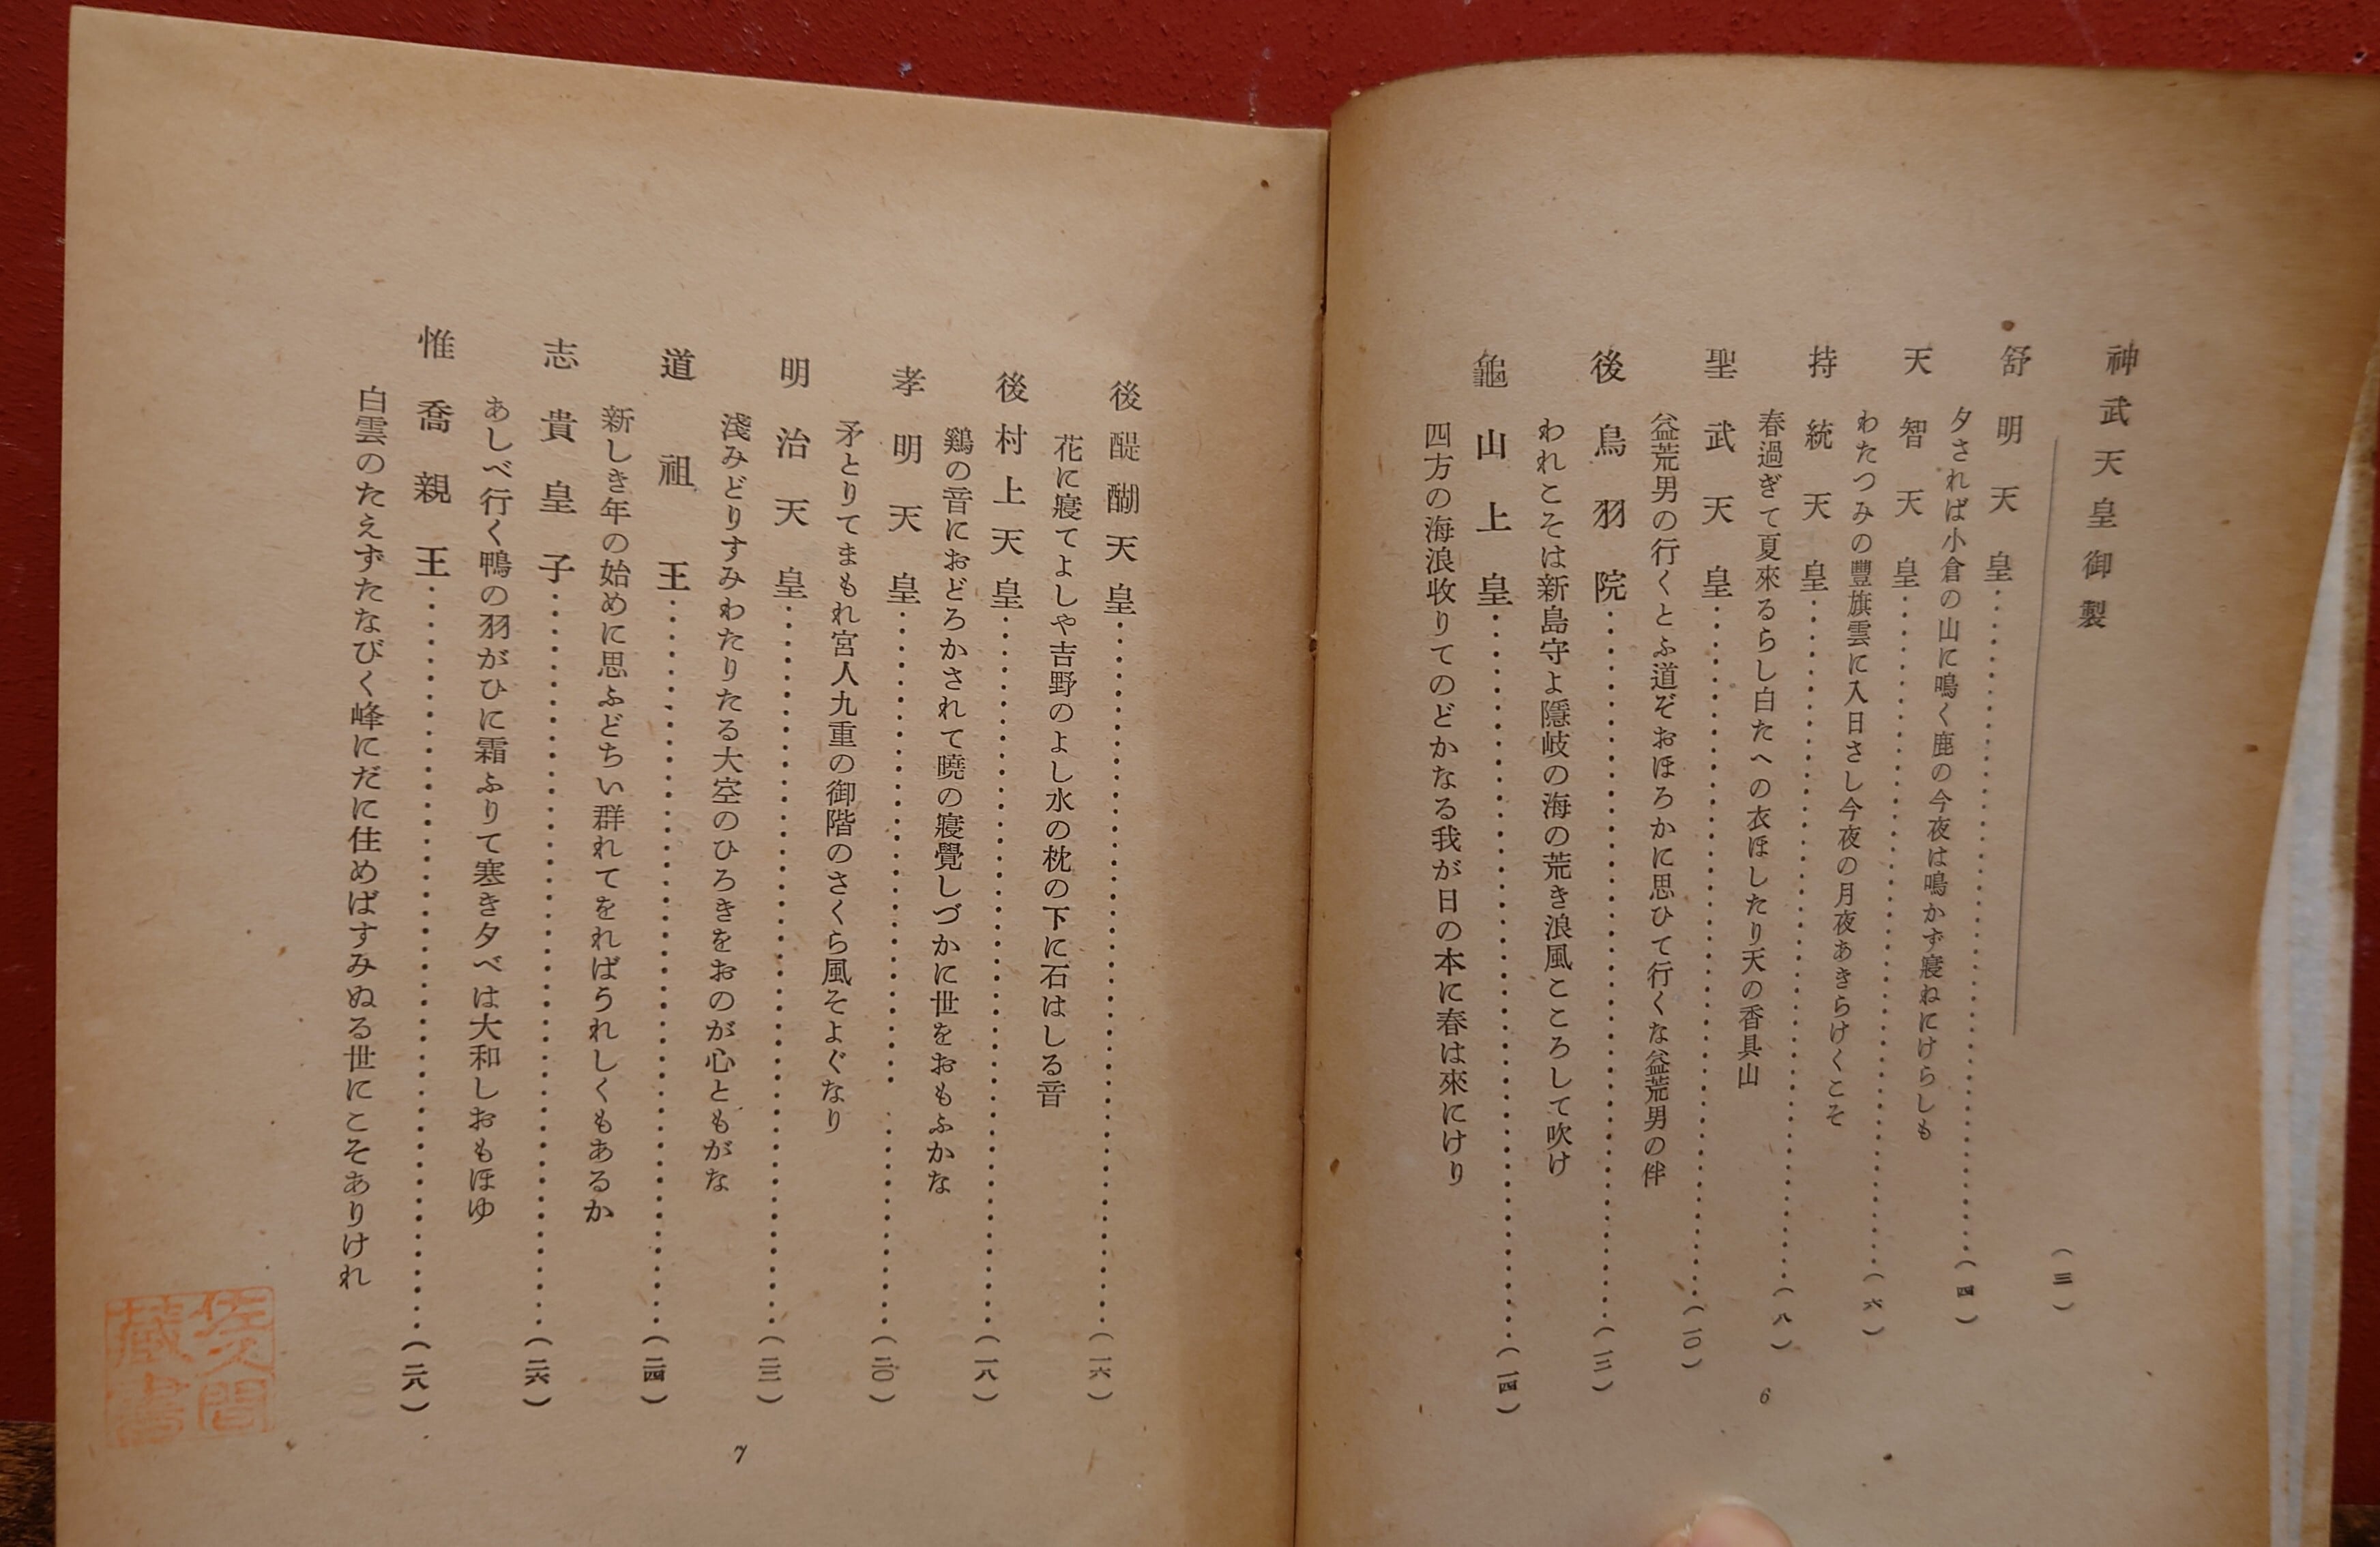 神武天皇御製（三）
舒明天皇……………………（四）
夕されば小倉の山に鳴く鹿の今夜は鳴かず寢ねにけらしも
天智天皇……………………（六）
わたつみの豐旗雲に入日さし今夜の月夜あきらけくこそ
持統天皇……………………（八）
春過ぎて夏來るらし白たへの衣ほしたり天の香具山
聖武天皇……………………（一〇）
益荒男の行くとふ道ぞおほろかに思ひて行くな益荒男の伴
後鳥羽院……………………（一二）
われこそは新島守よ隱岐の海の荒き浪風こころして吹け
龜山上皇……………………（一四）
四方の海浪收りてのどかなる我が日の本に春は來にけり
6
後醍醐天皇……………………（一六）
花に寢てよしや吉野のよし水の枕の下に石はしる音
後村上天皇……………………（一八）
鷄の音におどろかされて曉の寢覺しづかに世をおもふかな
孝明天皇……………………（二〇）
矛とりてまもれ宮人九重の御階のさくら風そよぐなり
明治天皇……………………（二二）
淺みどりすみわたりたる大空のひろきをおのが心ともがな
道祖王……………………（二四）
新しき年の始めに思ふどちい群れてをればうれしくもあるか
志貴皇子……………………（二六）
あしべ行く鴨の羽がひに霜ふりて寒き夕べは大和しおもほゆ
惟喬親王……………………（二八）
白雲のたえずたなびく峰にだに住めばすみぬる世にこそありけれ
7
佐久間
藏書